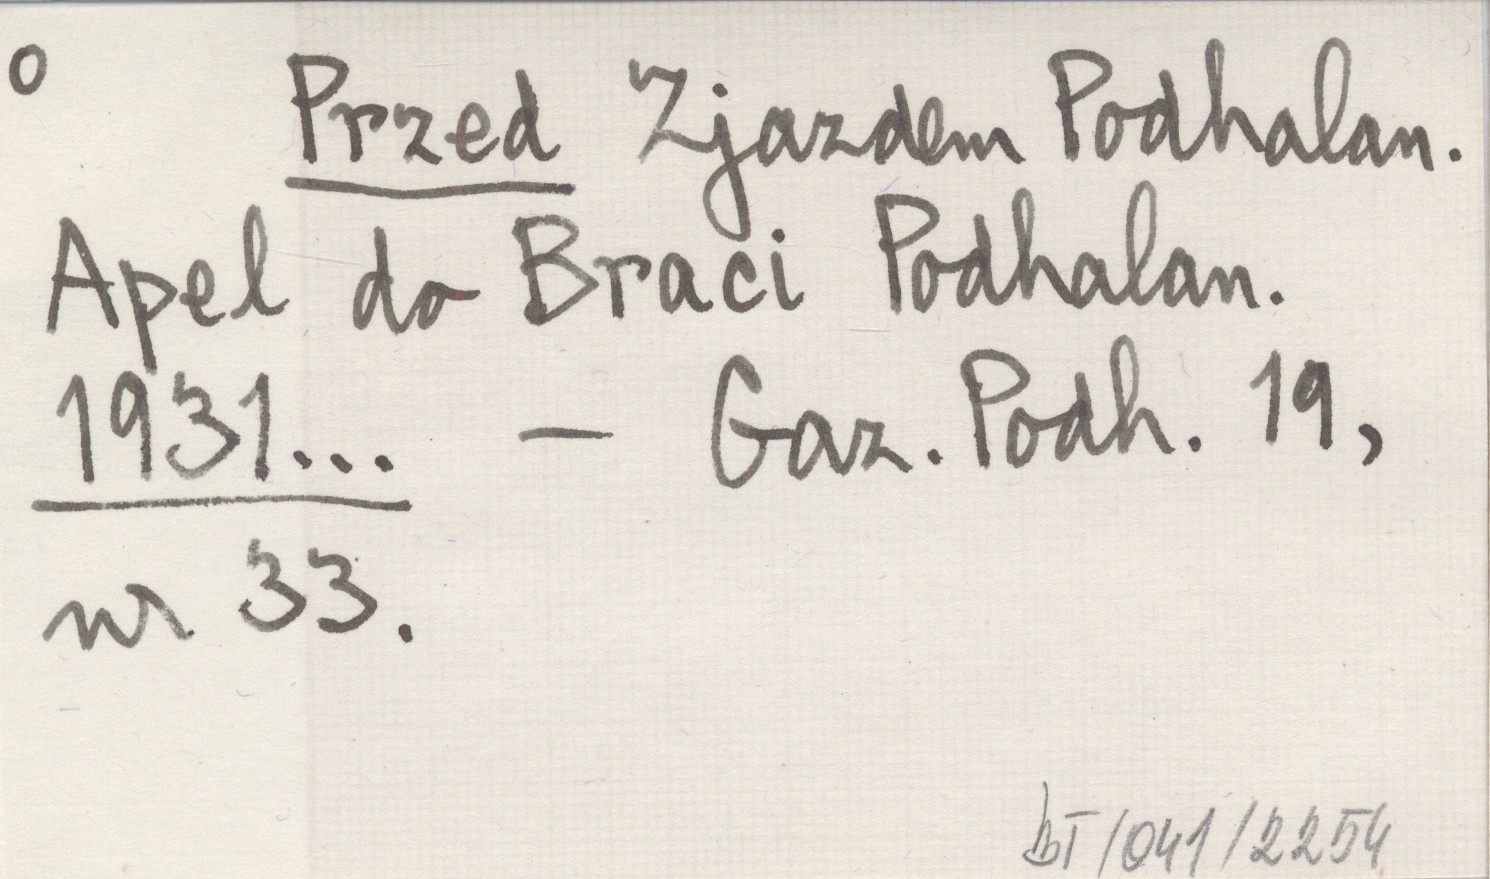 o Przed Zjazdem Podhalan.
Apel do Braci Podhalan.
1931... – Gaz. Podh. 19,
nr 33.
BT/041/2254